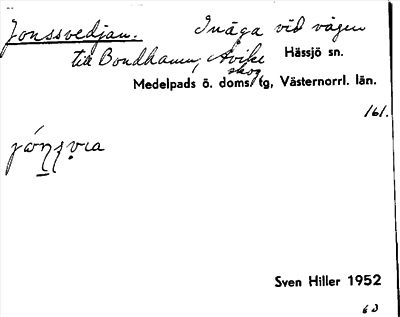 Jonssvedjan. Inäga vid vägen
till Bondhamn, Åvike Hässjö sn.
skog
Medelpads ö. doms. tg, Västernorrl. län.
161.
Sven Hiller 1952